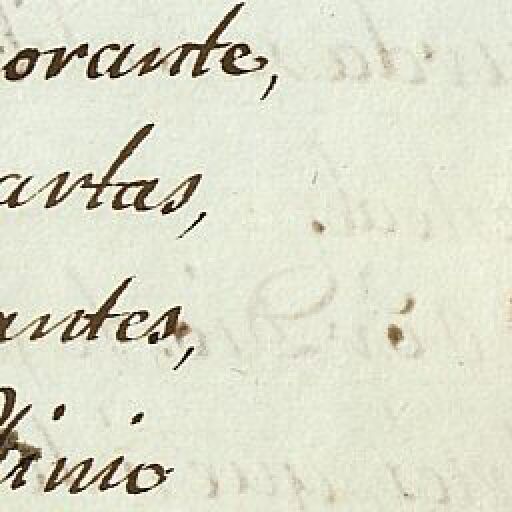 orante,
artas,
antes,
tinio